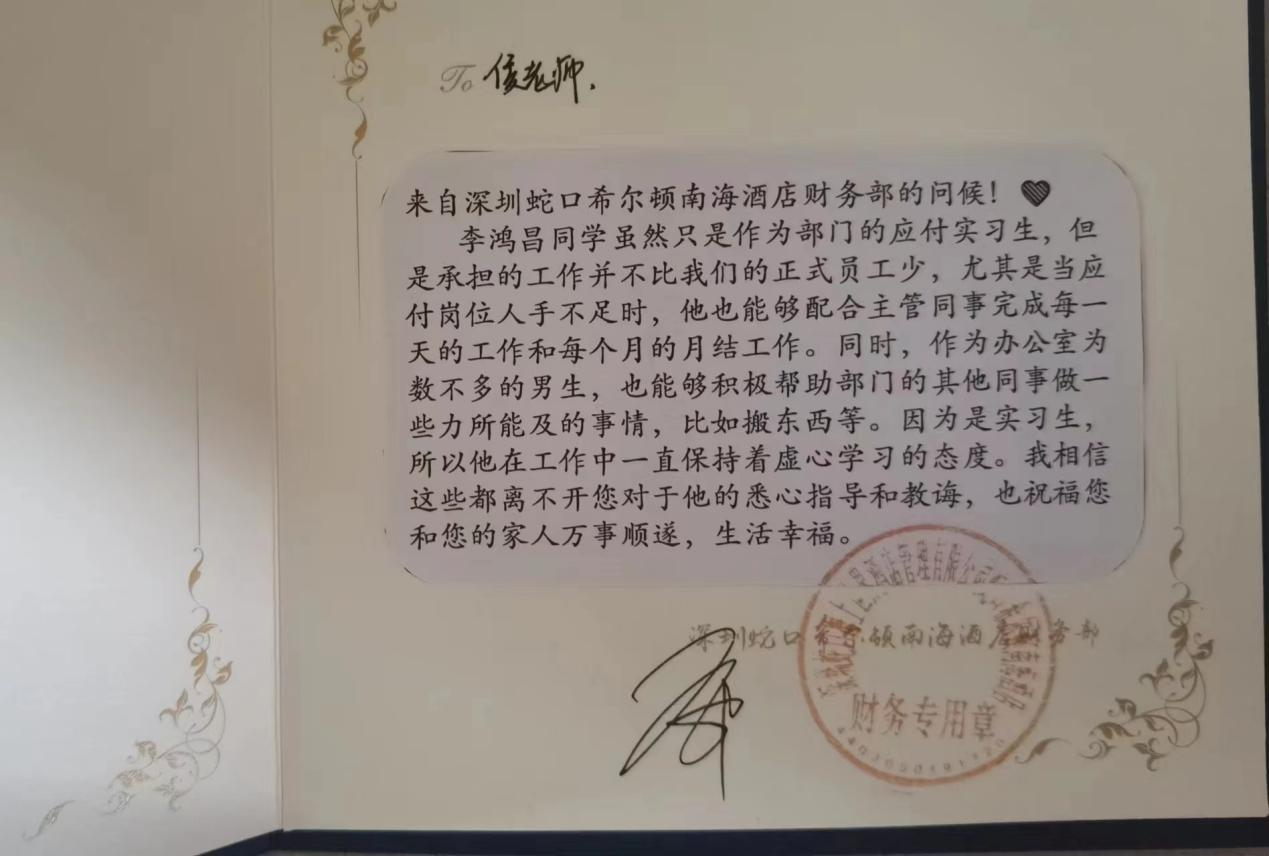 To 侯老师.
来自深圳蛇口希尔顿南海酒店财务部的问候！
李鸿昌同学虽然只是作为部门的应付实习生，但
是承担的工作并不比我们的正式员工少，尤其是当应
付岗位人手不足时，他也能够配合主管同事完成每一
天的工作和每个月的月结工作。同时，作为办公室为
数不多的男生，也能够积极帮助部门的其他同事做一
些力所能及的事情，比如搬东西等。因为是实习生，
所以他在工作中一直保持着虚心学习的态度。我相信
这些都离不开您对于他的悉心指导和教诲，也祝福您
和您的家人万事顺遂，生活幸福。
深圳蛇口希尔顿南海酒店财务部
财务专用章